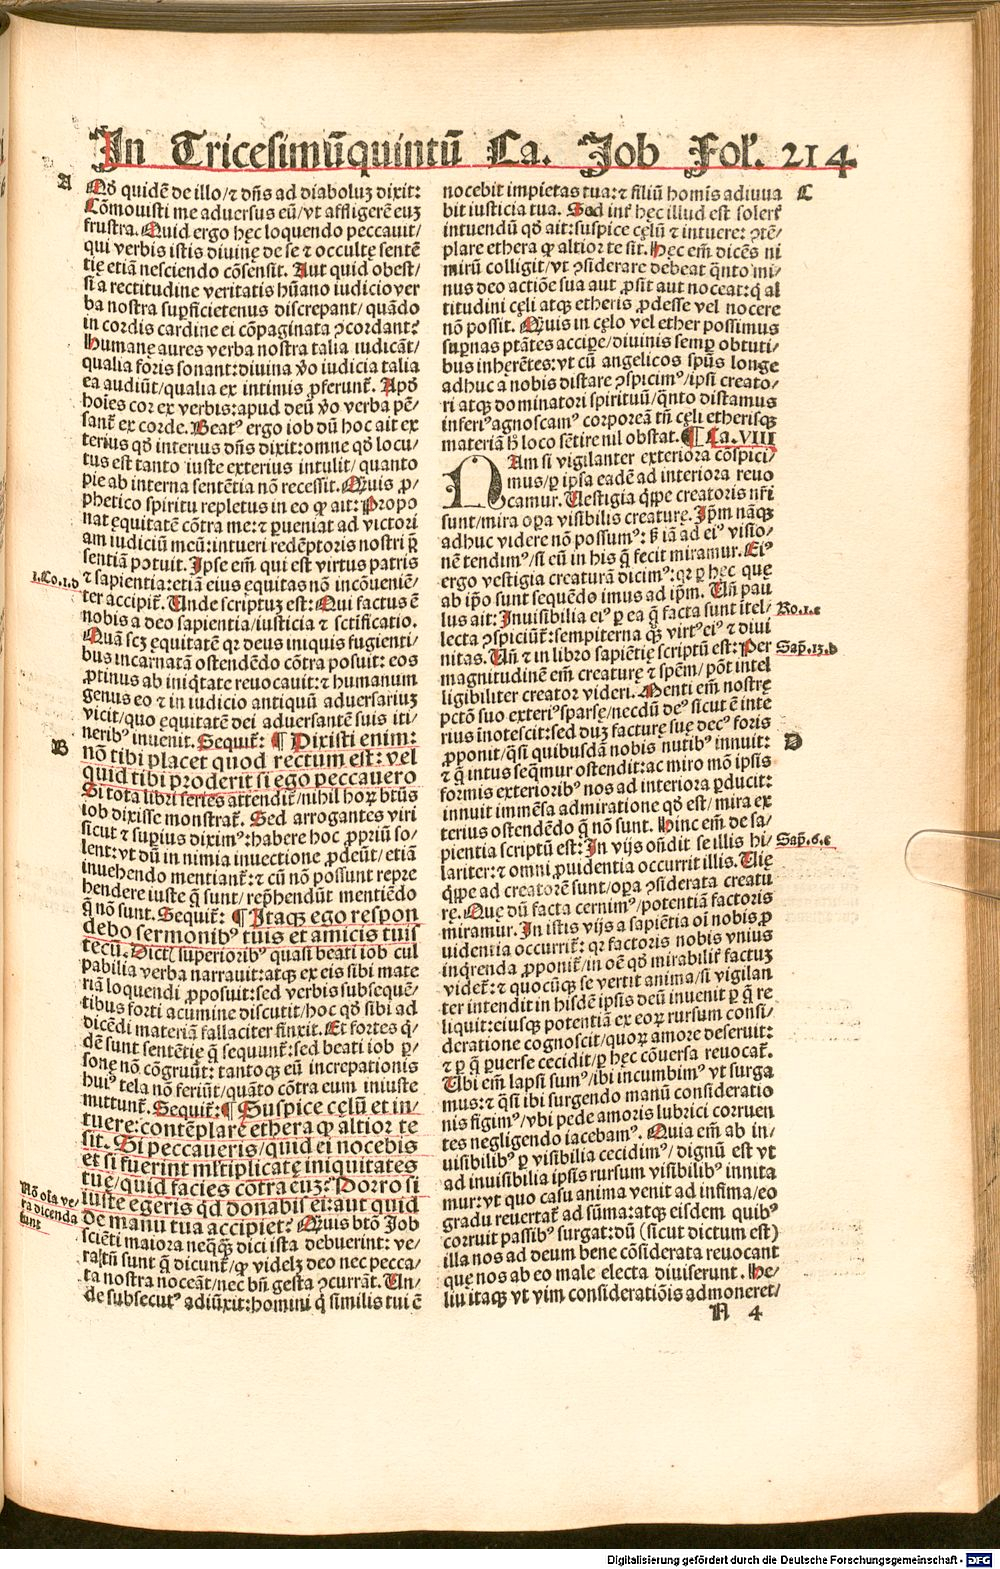 In Tricesimūquintū Ca. Job Fol'. 214.
A
Qđ quidē de illo/⁊ dñs ad diaboluȝ dixit:
Cōmouisti me aduersus eū/vt affligerē euȝ
frustra. Quid ergo hęc loquendo peccauit/
qui verbis istis diuinę de se ⁊ occultę sentē
tię etiā nesciendo cōsensit. Aut quid obest/
si a rectitudine veritatis hūano iudicio ver
ba nostra suꝑficietenus discrepant/quādo
in cordis cardine ei cōpaginata ɔcordant?
Humanę aures verba nostra talia iudicāt/
qualia foris sonant:diuina v̄o iudicia talia
ea audiūt/qualia ex intimis ꝓferunt̄. Apđ
hoīes cor ex verbis:apud deū v̄o verba pē/
sant̄ ex corde. Beatꝰ ergo iob dū hoc ait ex
terius qđ interius dñs dixit:omne qđ locu/
tus est tanto iuste exterius intulit/quanto
pie ab interna sentētia nō recessit. Quis ꝓ/
phetico spiritu repletus in eo ꝙ ait:Propo
nat ęquitatē cōtra me:⁊ ꝑueniat ad victori
am iudiciū meū:intueri redēptoris nostri p̄
sentiā potuit. Ipse em̄ qui est virtus patris
1.Co.1.d
⁊ sapientia:etiā eius ęquitas nō incōueniē/
ter accipit̄. Unde scriptuȝ est:Qui factus ē
nobis a deo sapientia/iusticia ⁊ sctificatio.
Quā scȝ ęquitatē qꝛ deus iniquis fugienti/
bus incarnatā ostendēdo cōtra posuit: eos
ꝓtinus ab iniq̇tate reuocauit:⁊ humanum
genus eo ⁊ in iudicio antiquū aduersariuȝ
vicit/quo ęquitatē dei aduersantē suis iti/
neribꝰ inuenit. Sequit̄: ¶ Dixisti enim:
B
nō tibi placet quod rectum est: vel
quid tibi proderit si ego peccauero
Si tota libri series attendit̄/nihil hoꝝ btūs
iob dixisse monstrat̄. Sed arrogantes viri
sicut ⁊ supius diximꝰ:habere hoc ꝓpriū so/
lent:vt dū in nimia inuectione ꝓdeūt/etiā
inuehendo mentiant̄:⁊ cū nō possunt repre
hendere iuste q̄ sunt/rep̄hendūt mentiēdo
q̄ nō sunt. Sequit̄: ¶ Itaqȝ ego respon
debo sermonibꝰ tuis et amicis tuis
tecū. Dictꝭ superioribꝰ quasi beati iob cul
pabilia verba narrauit:atqȝ ex eis sibi mate
riā loquendi ꝓposuit:sed verbis subsequē/
tibus forti acumine discutit/hoc qđ sibi ad
dicēdi materiā fallaciter finxit. Et fortes q̇/
dē sunt sentētię q̄ sequunt̄:sed beati iob ꝑ/
sonę nō cōgruūt: tantoqȝ eū increpationis
huiꝰ tela nō feriūt/quāto cōtra eum iniuste
mittunt̄. Sequit̄:¶ Suspice cęlū et in/
tuere:contēplare ethera ꝙ altior te
sit. Si peccaueris/quid ei nocebis
et si fuerint ml̄tiplicatę iniquitates
tuę/quid facies cōtra euȝ? Porro si
Nō oīa ve/
ra dicenda
sunt
iuste egeris qd donabis ei:aut quid
de manu tua accipiet? Quis btō Job
sciēti maiora neq̄qȝ dici ista debuerint: ve/
ra tn̄ sunt q̄ dicunt̄/ꝙ videlȝ deo nec pecca/
ta nostra noceāt/nec bn̄ gesta ɔcurrāt. Un/
de subsecutꝰ adiūxit:homini q̇ similis tui ē
nocebit impietas tua:⁊ filiū homīs adiuua
C
bit iusticia tua. Sed int̄ hęc illud est solert̄
intuendū qđ ait:suspice cęlū ⁊ intuere: ɔtē/
plare ethera ꝙ altior te sit. Hęc em̄ dicēs ni
mirū colligit/vt ɔsiderare debeat q̄nto mi/
nus deo actiōe sua aut ꝓsit aut noceat:q̇ al
titudini cęli atqȝ etheris ꝓdesse vel nocere
nō possit. Quis in cęlo vel ether possimus
suꝑnas ptātes accipe/diuinis semꝑ obtuti/
bus inherētes:vt cū angelicos spūs longe
adhuc a nobis distare ɔspicimꝰ/ipsi creato/
ri atqȝ dominatori spirituū/q̄nto distamus
inferiꝰ agnoscamꝰ corporeā tn̄ cęli etherisqȝ
materiā h̄ loco sētire nil obstat. ¶ Ca. VIII
NAm si vigilanter exteriora cōspici/
mus/ꝑ ipsa eadē ad interiora reuo
camur. Uestigia q̇ppe creatoris nr̄i
sunt/mira oꝑa visibilis creaturę. Ip̄m nāqȝ
adhuc videre nō possumꝰ: s̄ iā ad eiꝰ visio/
nē tendimꝰ/si eū in his q̄ fecit miramur. Eiꝰ
ergo vestigia creaturā dicimꝰ:qꝛ ꝑ hęc quę
ab ip̄o sunt sequēdo imus ad ip̄m. Un̄ pau
lus ait:Inuisibilia eiꝰ ꝑ ea q̄ facta sunt itel/
Ro.1.c
lecta ɔspiciūt̄:sempiterna qȝ virtꝰ eiꝰ ⁊ diui
nitas. Un̄ ⁊ in libro sapiētię scriptū est:Per
Sap̄.13.b
magnitudinē em̄ creaturę ⁊ spēm/pōt intel
ligibiliter creatoꝛ videri. Menti em̄ nostrę
pctō suo exteriꝰ sparsę/necdū deꝰ sicut ē inte
rius īnotescit:sed duȝ facturę suę decꝰ foris
D
ꝓponit/q̄si quibusdā nobis nutibꝰ innuit:
⁊ q̄ intus seq̄mur ostendit:ac miro mō ipsis
formis exterioribꝰ nos ad interiora ꝑducit:
innuit immēsa admiratione qđ est/mira ex
terius ostendēdo q̄ nō sunt. Hinc em̄ de sa/
pientia scriptū est:In vijs oñdit se illis hi/
Sap̄.6.c
lariter:⁊ omni ꝓuidentia occurrit illis. Uię
q̇ppe ad creatorē sunt/oꝑa ɔsiderata creatu
rę. Que dū facta cernimꝰ/potentiā factoris
miramur. In istis vijs a sapiētia oī nobis ꝓ
uidentia occurrit̄: qꝛ factoris nobis vnius
inq̇renda ꝓponit̄/in oē qđ mirabilit̄ factuȝ
videt̄:⁊ quocūqȝ se vertit anima/si vigilan
ter intendit in hisdē ipsis deū inuenit ꝑ q̄ re
liquit:eiusqȝ potentiā ex eoꝝ rursum consi/
deratione cognoscit/quoꝝ amore deseruit:
⁊ ꝑ q̄ ꝑuerse cecidit/ꝑ hęc cōuersa reuocat̄.
Ubi em̄ lapsi sumꝰ/ibi incumbimꝰ vt surga
mus:⁊ q̄si ibi surgendo manū consideratio
nis figimꝰ/vbi pede amoris lubrici corruen
tes negligendo iacebamꝰ. Quia em̄ ab in/
uisibilibꝰ ꝑ visibilia cecidimꝰ/dignū est vt
ad inuisibilia ipsis rursum visibilibꝰ innita
mur:vt quo casu anima venit ad infima/eo
gradu reuertat̄ ad sūma:atqȝ eisdem quibꝰ
corruit passibꝰ surgat:dū (sicut dictum est)
illa nos ad deum bene cōsiderata reuocant
quę nos ab eo male electa diuiserunt. He/
liu itaqȝ vt vim consideratiōis admoneret/
N 4
Digitalisierung gefördert durch die Deutsche Forschungsgemeinschaft - DFG